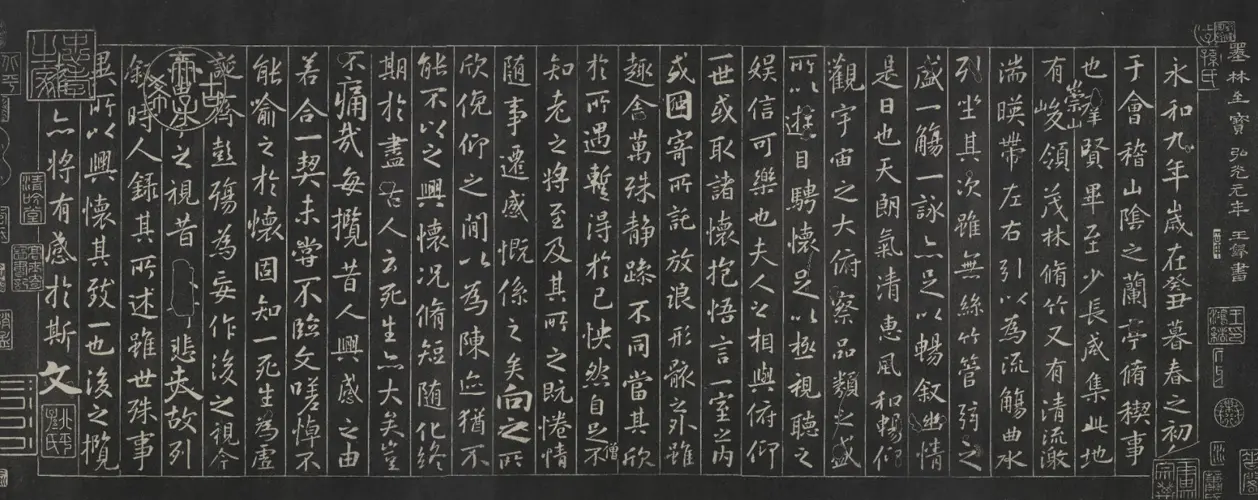 墨林至寶 弘光元年 王鐸書
永和九年歲在癸丑暮春之初
于會稽山陰之蘭亭脩稧事
也羣賢畢至少長咸集此地
有崇山峻領茂林脩竹又有清流激
湍暎帶左右引以為流觴曲水
列坐其次雖無絲竹管弦之
盛一觴一詠亦足以暢叙幽情
是日也天朗氣清惠風和暢仰
觀宇宙之大俯察品類之盛
所以遊目騁懷足以極視聽之
娛信可樂也夫人之相與俯仰
一世或取諸懷抱悟言一室之內
或因寄所託放浪形骸之外雖
趣舍萬殊静躁不同當其欣
於所遇蹔得於己怏然自足不
僧
知老之將至及其所之既惓情
随事遷感慨係之矣向之所
欣俛仰之閒以為陳迹猶不
能不以之興懷況脩短随化終
期於盡古人云死生亦大矣豈
不痛哉每攬昔人興感之由
若合一契未嘗不臨文嗟悼不
能喻之於懷固知一死生為虛
誕齊彭殤為妄作後之視今
亦由今之視昔悲夫故列
叙時人錄其所述雖世殊事
異所以興懷其致一也後之攬
者亦將有感於斯文
清吟堂